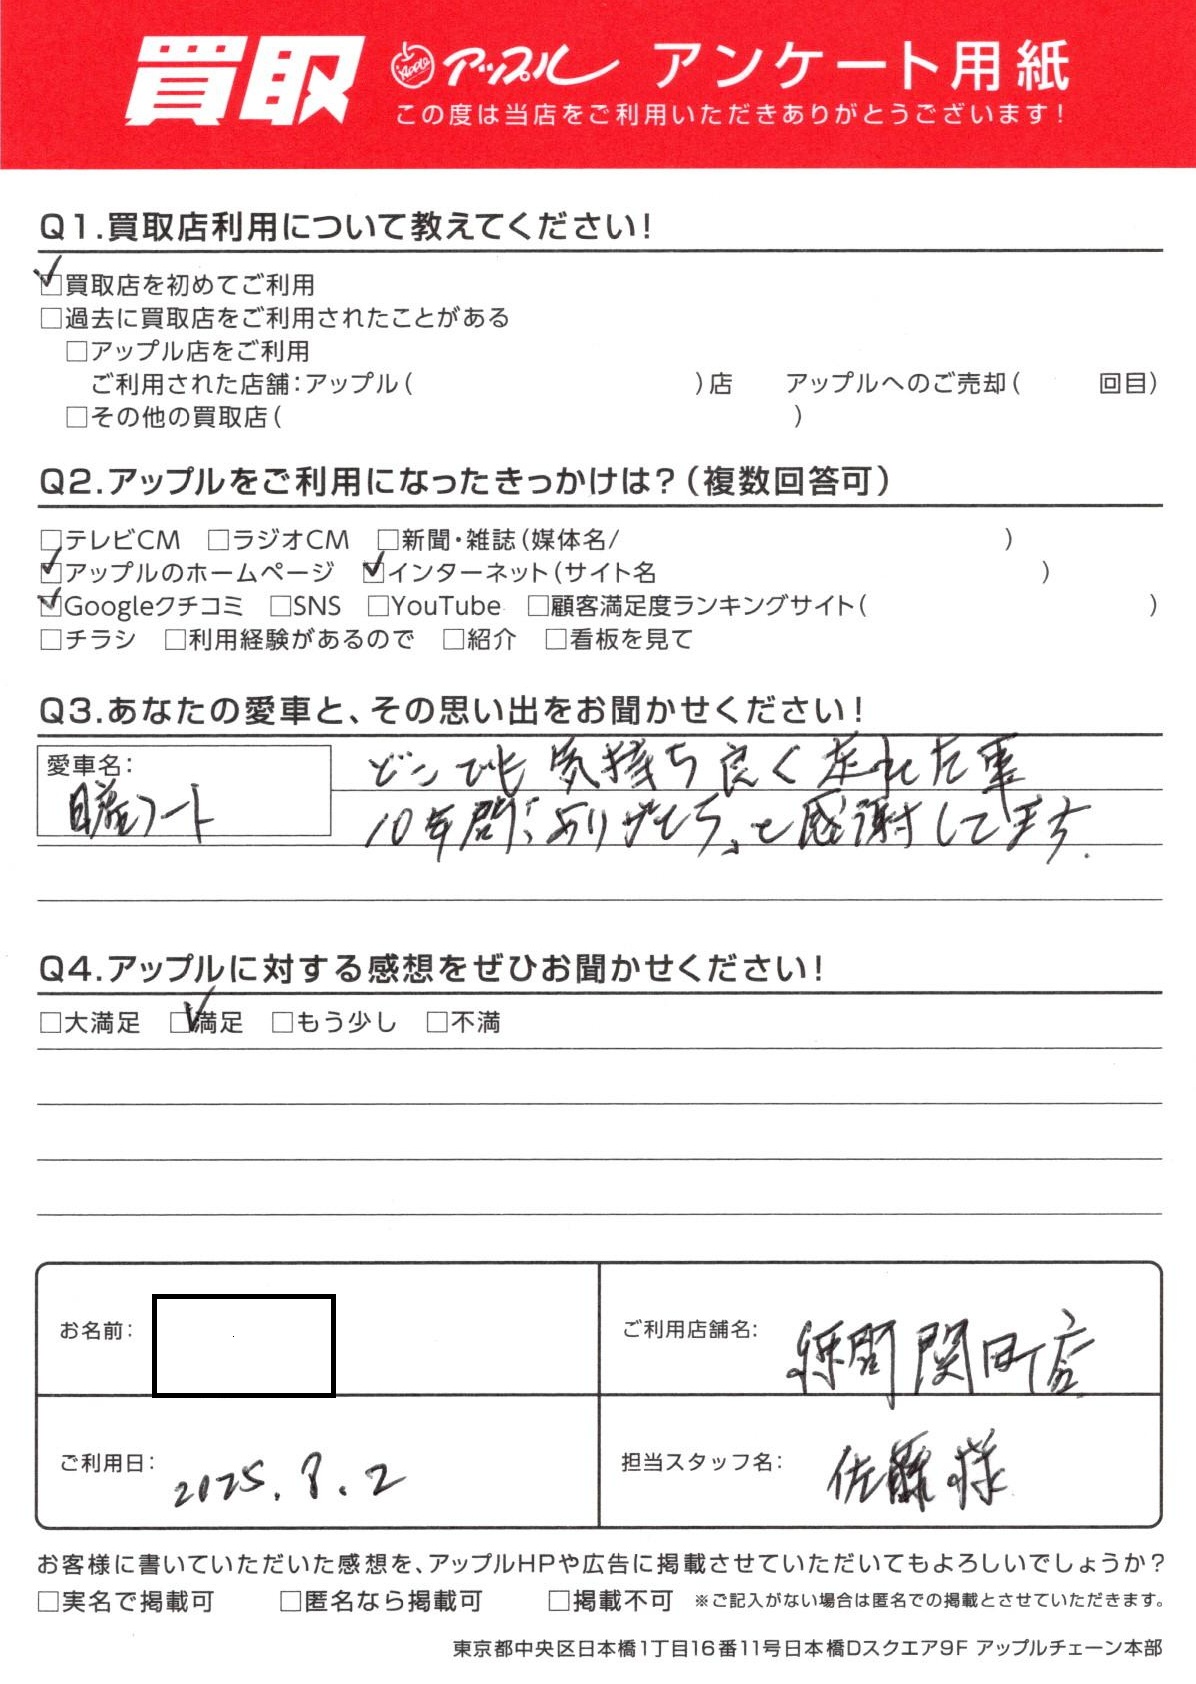 買取 Apple アップル アンケート用紙
この度は当店をご利用いただきありがとうございます!
Q1.買取店利用について教えてください!
□買取店を初めてご利用
□過去に買取店をご利用されたことがある
□アップル店をご利用
ご利用された店舗:アップル( )店 アップルへのご売却( 回目)
□その他の買取店( )
Q2.アップルをご利用になったきっかけは?(複数回答可)
□テレビCM □ラジオCM □新聞・雑誌(媒体名/ )
□アップルのホームページ □インターネット(サイト名 )
□Googleクチコミ □SNS □YouTube □顧客満足度ランキングサイト( )
□チラシ □利用経験があるので □紹介 □看板を見て
Q3.あなたの愛車と、その思い出をお聞かせください!
愛車名:
どこでも気持ち良く走れた事
10年間、ありがとう。と感謝してます.
Q4.アップルに対する感想をぜひお聞かせください!
□大満足 □満足 □もう少し □不満
お名前:
ご利用店舗名: 練馬関町店
ご利用日: 2025.8.2
担当スタッフ名: 佐藤様
お客様に書いていただいた感想を、アップルHPや広告に掲載させていただいてもよろしいでしょうか?
□実名で掲載可 □匿名なら掲載可 □掲載不可 ※ご記入がない場合は匿名での掲載とさせていただきます。
東京都中央区日本橋1丁目16番11号日本橋Dスクエア9F アップルチェーン本部